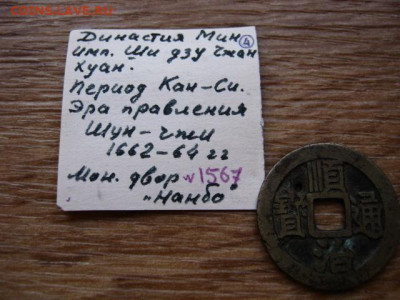 COINSS.LAVE.RU
Династия Мин. 4
имп. Ши дзу Чжан
Хуан.
Период Кан-Си.
Эра правления
Шун-чжи
1662-64 гг
Мон. двор N1567
"Нанбо"
順治通寳